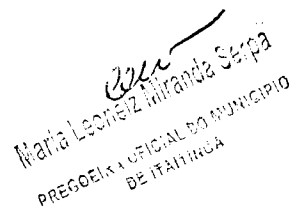 Maria Leoneiz Miranda Serpa
PREGOEIRA OFICIAL DO MUNICIPIO
DE ITAITINGA